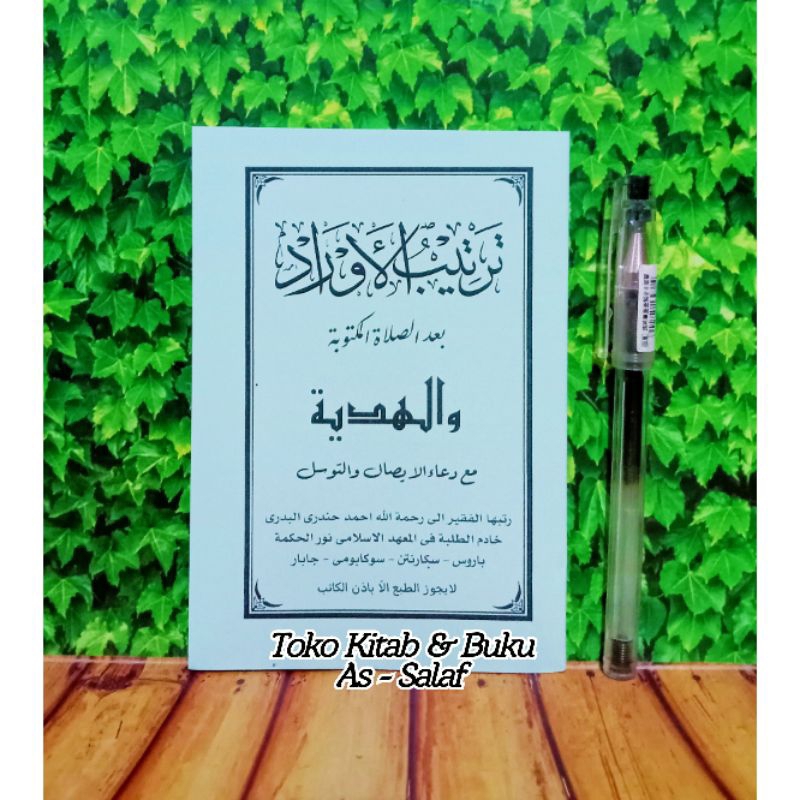 ترتيب الأوراد
بعد الصلاة المكتوبة
والهدية
مع دعاء الايصال والتوسل
رتبها الفقير الى رحمة الله احمد حندرى البدرى
خادم الطلبة فى المعهد الاسلامى نور الحكمة
باروس - سكارنتن - سوكابومى - جابار
لايجوز الطبع الا باذن الكاتب
Toko Kitab & Buku
As - Salaf